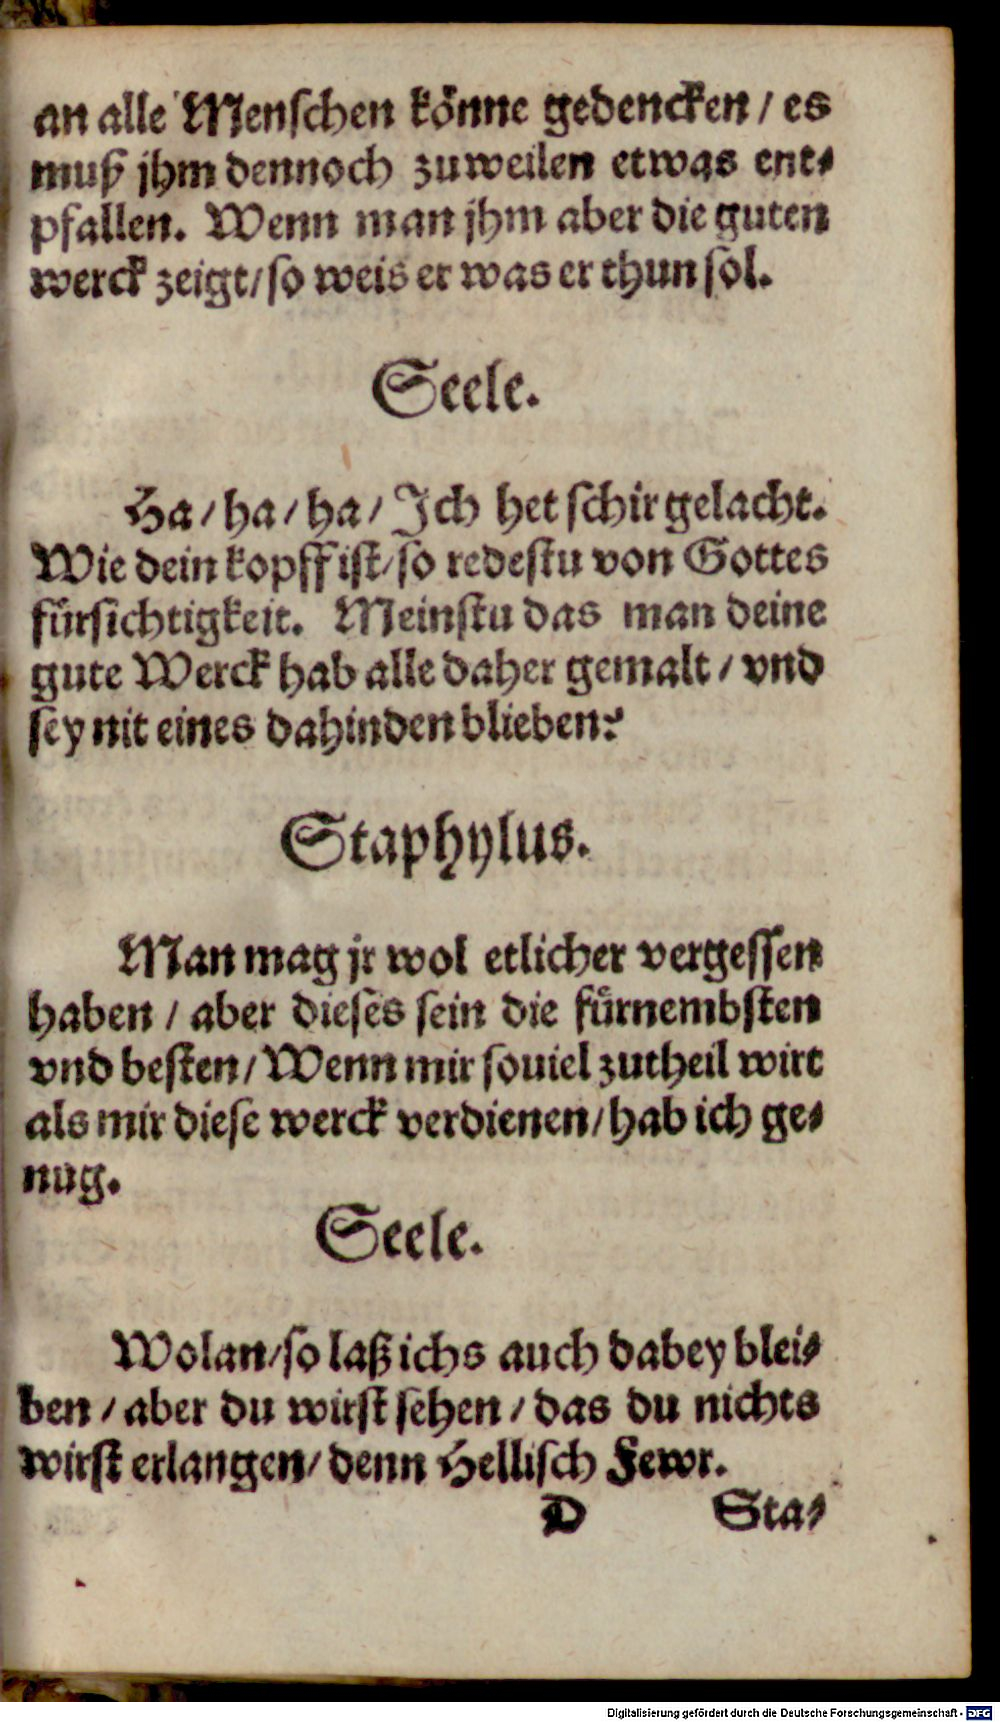 an alle Menſchen koͤnne gedencken / es
muß jhm dennoch zuweilen etwas ent⸗
pfallen. Wenn man jhm aber die guten
werck zeigt / ſo weis er was er thun ſol.
Seele.
Ha / ha / ha / Ich het ſchir gelacht.
Wie dein kopff iſt / ſo redeſtu von Gottes
fuͤrſichtigkeit. Meinſtu das man deine
gute Werck hab alle daher gemalt / vnd
ſey nit eines dahinden blieben?
Staphylus.
Man mag jr wol etlicher vergeſſen
haben / aber dieſes ſein die fuͤrnembſten
vnd beſten / Wenn mir ſouiel zutheil wirt
als mir dieſe werck verdienen / hab ich ge⸗
nug.
Seele.
Wolan / ſo laß ichs auch dabey blei⸗
ben / aber du wirſt ſehen / das du nichts
wirſt erlangen / denn Helliſch Fewr.
D Sta⸗
Digitalisierung gefördert durch die Deutsche Forschungsgemeinschaft - DFG